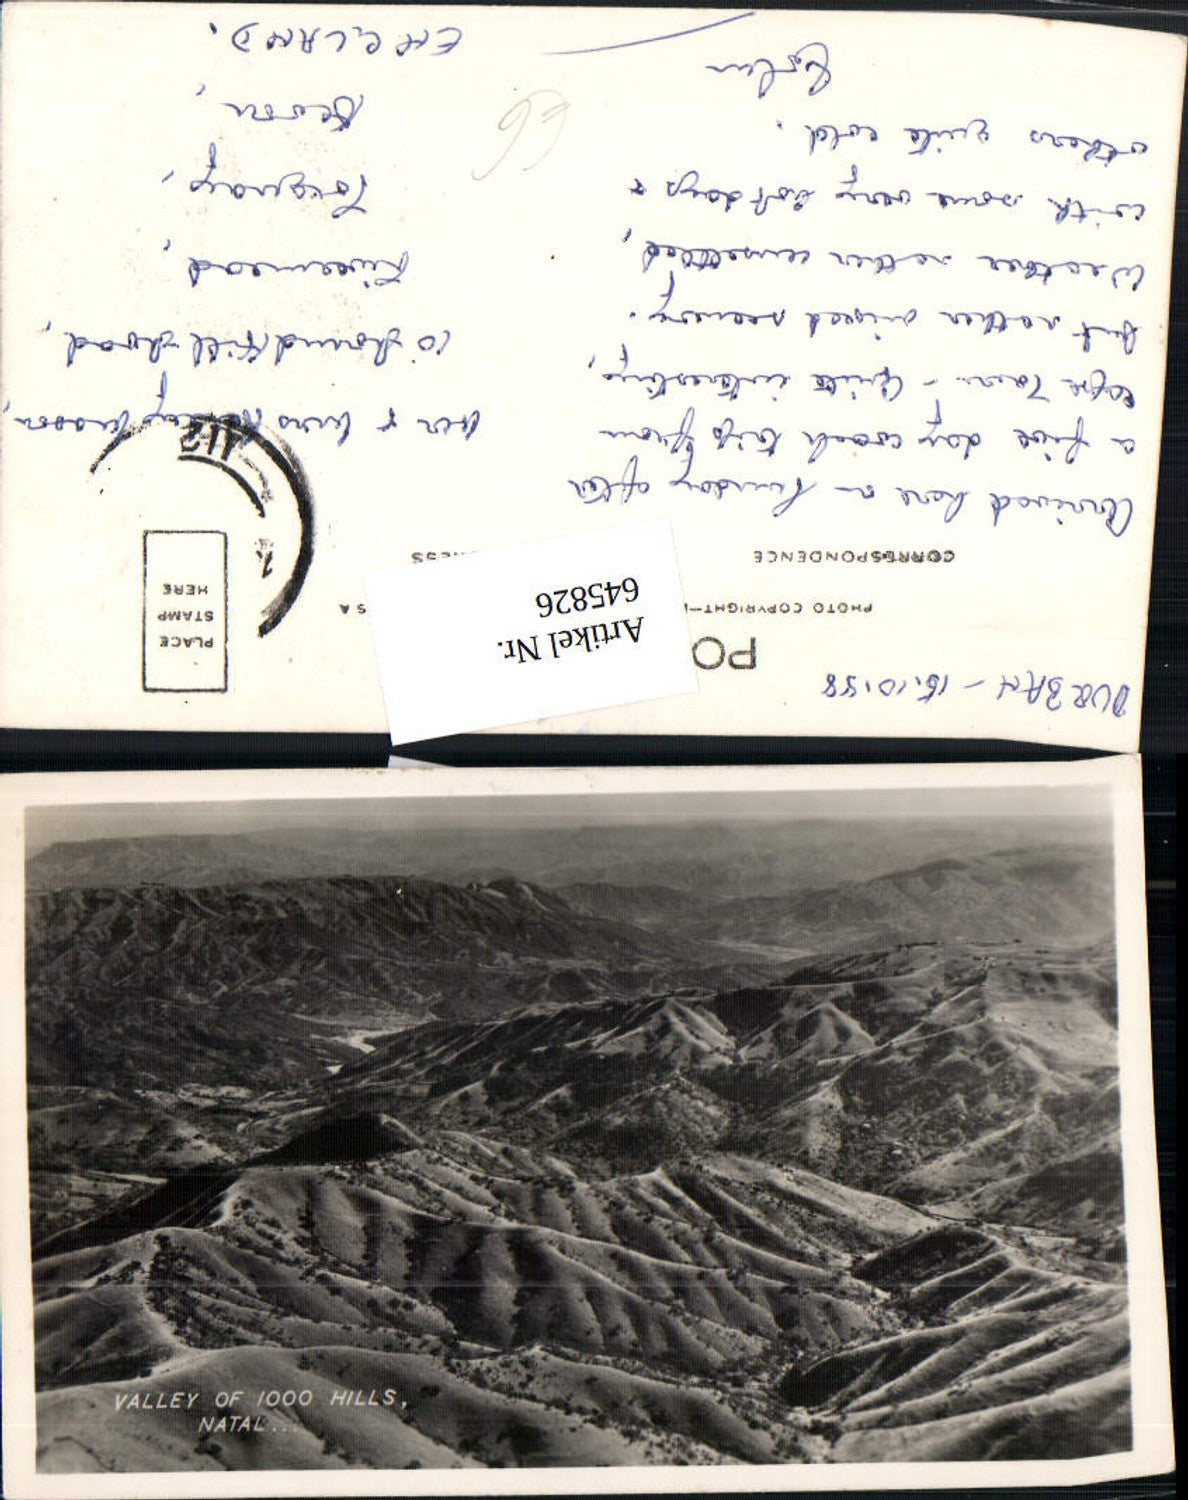 DURBAN - 15.10.58
PO
PHOTO COPYRIGHT—
S A
CORRESPONDENCE
PLACE
STAMP
HERE
Artikel Nr.
645826
Arrived here on Sunday after
a five day coach trip from
Cape Town - Quite interesting,
but rather mixed scenery.
Weather rather unsettled,
with some very hot days &
others quite cold.
Mr & Mrs
10 Hill Road,
Livermead,
Torquay,
Devon,
ENGLAND.
VALLEY OF 1000 HILLS,
NATAL...